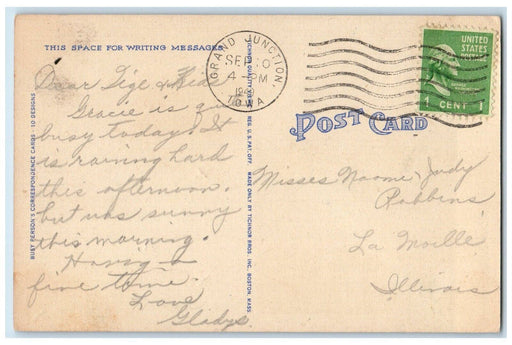 THIS SPACE FOR WRITING MESSAGES
Dear Gige & Kid
Gracie is
busy today. It
is raining hard
this afternoon.
but was sunny
this morning.
Having a
fine time.
Love
Gladys
BUSY PERSON'S CORRESPONDENCE CARDS - 10 DESIGNS
TICHNOR QUALITY VIEWS REG. U.S. PAT. OFF. MADE ONLY BY TICHNOR BROS. INC. BOSTON, MASS.
GRAND JUNCTION,
SEP
4 PM
IOWA
UNITED
STATES
POSTAGE
1 CENT 1
POST CARD
Misses Naomi, Judy
Robbins
La Moille
Illinois